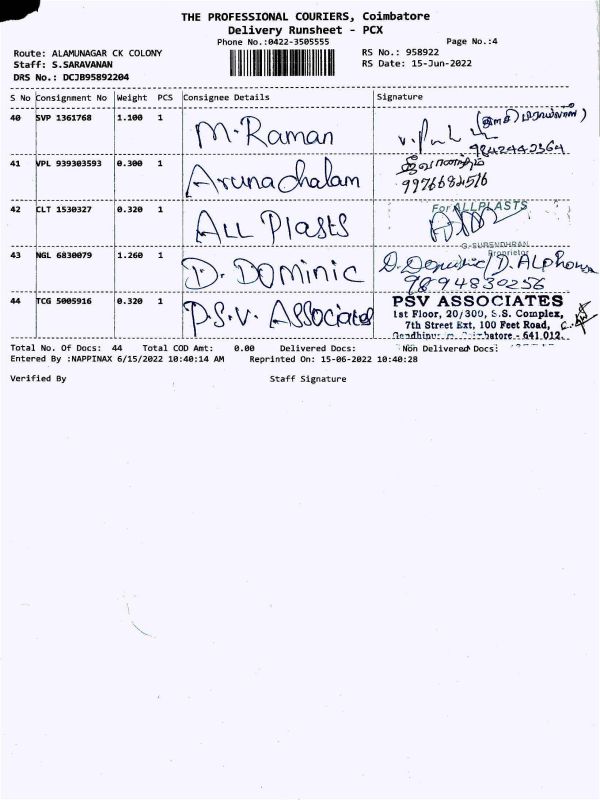 THE PROFESSIONAL COURIERS, Coimbatore
Delivery Runsheet - PCX
Phone No.:0422-3505555
Page No.:4
Route: ALAMUNAGAR CK COLONY
RS No.: 958922
Staff: S.SARAVANAN
RS Date: 15-Jun-2022
DRS No.: DCJB95892204
S No Consignment No Weight PCS Consignee Details Signature
40 SVP 1361768 1.100 1 M.Raman
9842442364
41 VPL 939303593 0.300 1 Arunachalam ஜீவானந்தம்
9976684516
42 CLT 1530327 0.320 1 ALL Plasts For ALL PLASTS
G.SURENDHRAN
Proprietor
43 NGL 6830079 1.260 1 D. DOMINIC D. Dominic/D.ALPhonsa
9894830256
44 TCG 5005916 0.320 1 P.S.V. Associates PSV ASSOCIATES
1st Floor, 20/300, S.S. Complex,
7th Street Ext, 100 Feet Road,
641 012.
Total No. Of Docs: 44 Total COD Amt: 0.00 Delivered Docs: Non Delivered Docs:
Entered By :NAPPINAX 6/15/2022 10:40:14 AM Reprinted On: 15-06-2022 10:40:28
Verified By Staff Signature